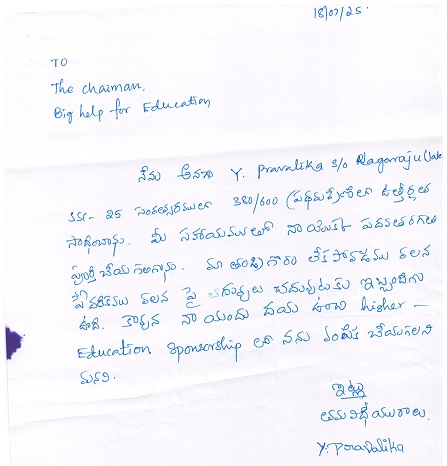 18/07/25.
TO
The chaiman.
Big help for Education
నేను అనగా Y. Pravalika S/o Nagaraju (late
SSC- 25 సంవత్సరములో 380/600 (ప్రథమశ్రేణిలో ఉత్తీర్ణత
సాధించాను. మీ సహాయములో నా యొక్క పదవతరగతి
పూర్తి చేయ గలిగాను. మా తండ్రి గారు లేకపోవడము వలన
పేదరికము వలన పై చదువులు చదువుటకు ఇబ్బందిగా
ఉంది. కావున నా యందు దయ ఉంచి higher -
Education Sponsorship లో నను ఎంపిక చేయగలని
మనవి.
ఇట్లు
తమ విధేయురాలు.
Y. Pravalika